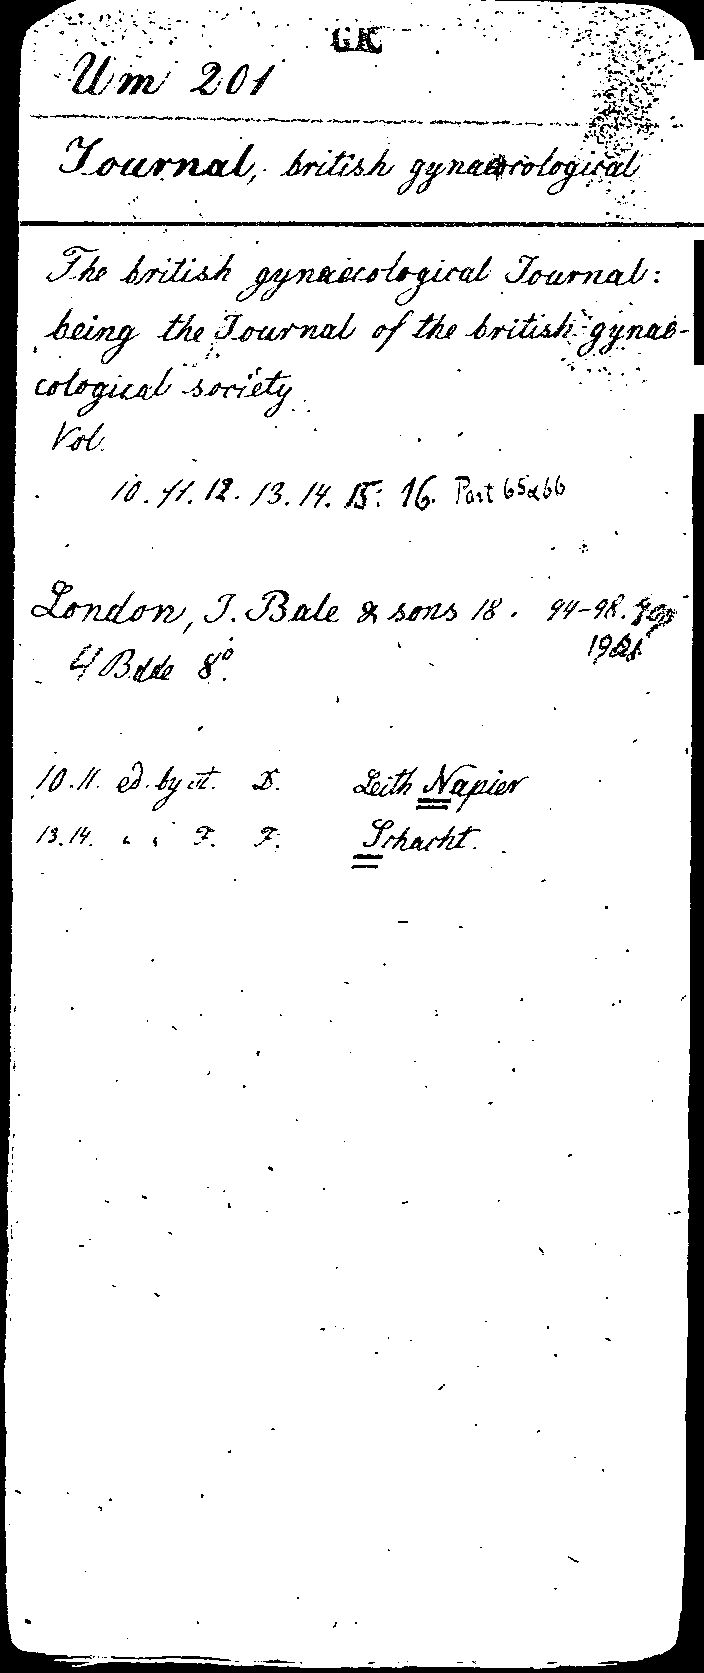 GK
Um 201
Journal, british gynaecological
The british gynaecological Journal:
being the Journal of the british gynae-
cological society
Vol.
10. 11. 12. 13. 14. 15. 16. Part 65 & 66
London, J. Bale & sons 18 . 94-98.
4 Bde 8°.
10.11. ed. by D. Leith Napier
13.14. " " F. F. Schacht.